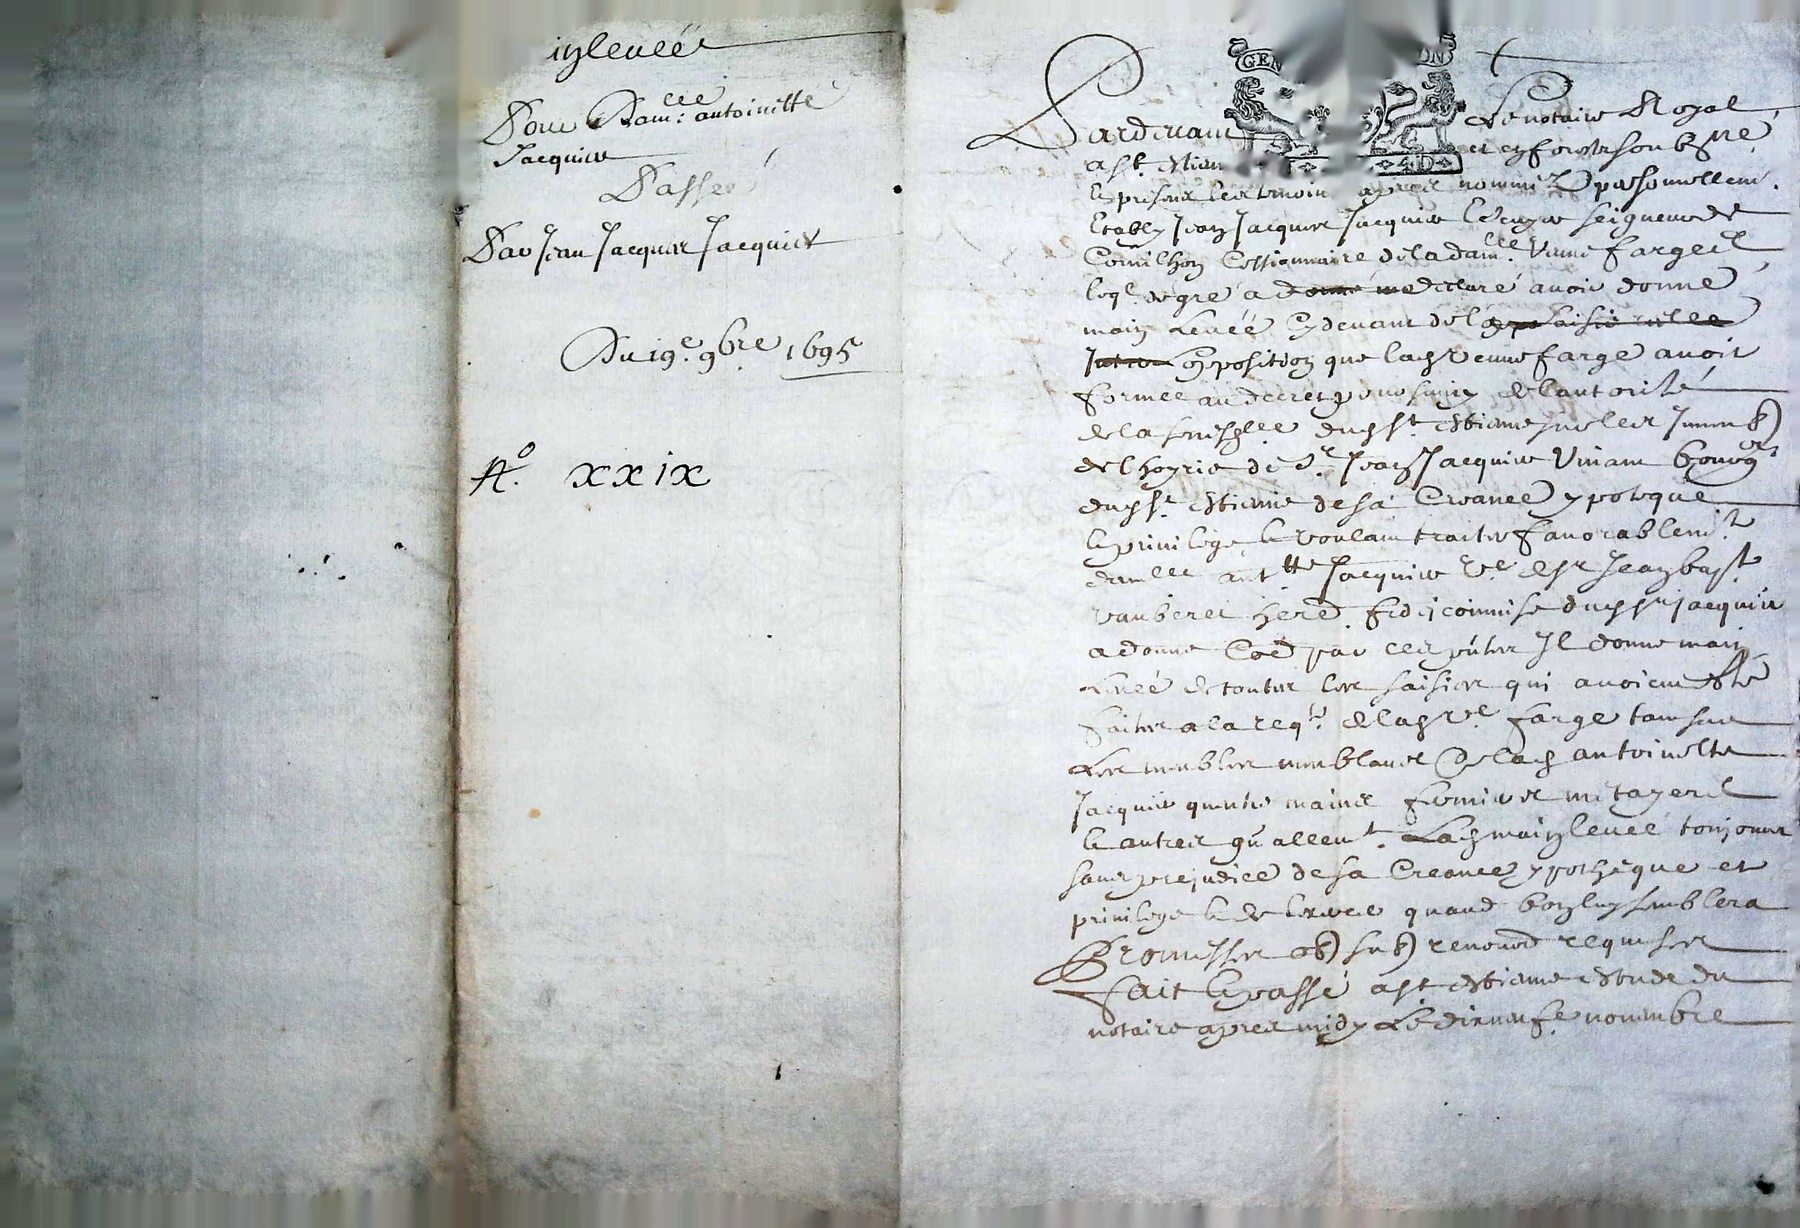 inlevée
Pour Dam.lle antoinette
Jacquier
Passé
Par Jean Jacques Jacquier
Du 19e. 9bre 1695
A°. XXIX
GEN ON
4·D
Pardevant Le notaire Royal
a St. Estienne et en forestz soubzne
les tesmoins apres nommez personnellem.
Estably Jean Jacques Jacquier Escuyer seigneur de
Cornilhon Cessionnaire de la dam.lle Veuve farge
leql de gré a declaré avoir donné
main Levée Cy devant de
opposition que lad Veuve farge avoit
formée au decret de lautorité
de la dud St. Estienne sur les Immeub)
de lhoyrie de Sr. Jean Jacquier Vivant bourgs
dud St. Estienne de sa Creance ypoteque
et privilege et voulant traiter favorablemt.
damlle antte Jacquier Ve de Sr Jean bapt
vauberet hered. fideicommise dud Sr jacquier
a donné par Il donne main
Levée de toutes les saisies qui avoient esté
faites a la reqte. de lad Ve farge tant sur
Les meubles meublans de lad antoinette
Jacquier qu'entre mains fermiers metayers
et autres Lad main levée toujours
sans prejudice de sa Creance ypotheque et
privilege et de quand bon luy semblera
Promisses ob) sub) renond requises
fait et passé a St Estienne Estude du
notaire apres midy Le dixneufe. novembre